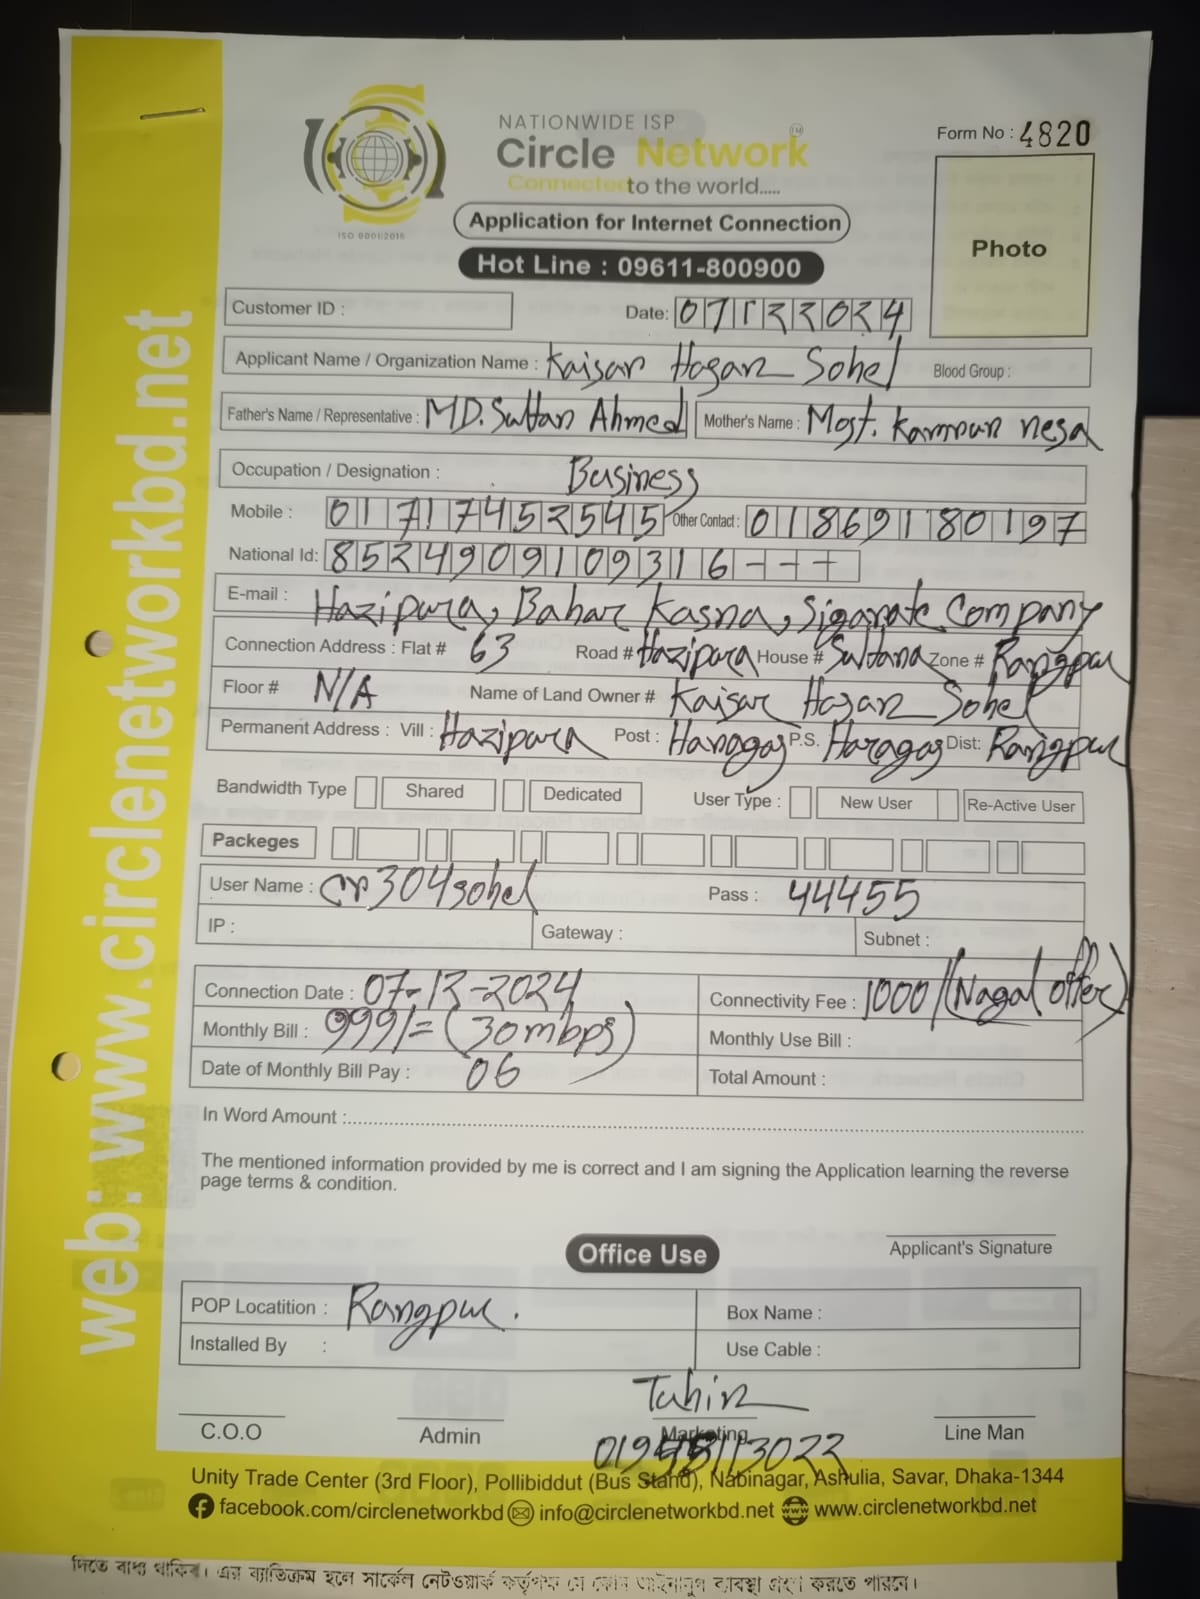 NATIONWIDE ISP
Circle Network TM
Connected to the world.....
ISO 9001:2015
Form No : 4820
Application for Internet Connection
Hot Line : 09611-800900
Photo
Customer ID :
Date: 07122024
Applicant Name / Organization Name : Kaisar Hasan Sohel Blood Group :
Father's Name / Representative : MD. Sultan Ahmed Mother's Name : Most. Kamrun nesa
Occupation / Designation : Business
Mobile : 01717452545 Other Contact : 01869180197
National Id: 8524909109316---
E-mail : Hazipara, Bahar Kasna, Sigarate Company
Connection Address : Flat # 63 Road # Hazipara House # Sultana Zone # Rangpur
Floor # N/A Name of Land Owner # Kaisar Hasan Sohel
Permanent Address : Vill : Hazipara Post : Haragas P.S. Haragas Dist: Rangpur
Bandwidth Type Shared Dedicated User Type : New User Re-Active User
Packeges
User Name : cnp304sohel Pass : 44455
IP : Gateway : Subnet :
Connection Date : 07-12-2024 Connectivity Fee : 1000/(Nagad offer)
Monthly Bill : 999/= (30mbps) Monthly Use Bill :
Date of Monthly Bill Pay : 06 Total Amount :
In Word Amount :
The mentioned information provided by me is correct and I am signing the Application learning the reverse
page terms & condition.
Applicant's Signature
Office Use
POP Locatition : Rangpur. Box Name :
Installed By : Use Cable :
Tuhin
C.O.O Admin Marketing Line Man
Unity Trade Center (3rd Floor), Pollibiddut (Bus Stand), Nabinagar, Ashulia, Savar, Dhaka-1344
facebook.com/circlenetworkbd info@circlenetworkbd.net www.circlenetworkbd.net
web: www.circlenetworkbd.net
দিতে বাধ্য থাকিব। এর ব্যতিক্রম হলে সার্কেল নেটওয়ার্ক কর্তৃপক্ষ যে কোন আইনানুগ ব্যবস্থা গ্রহণ করতে পারবে।